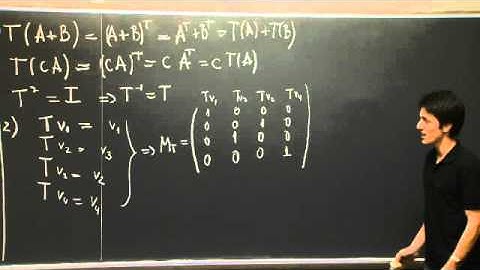 T(A+B) = (A+B)^T = A^T + B^T = T(A) + T(B)
T(cA) = (cA)^T = c A^T = c T(A)
T^2 = I ⇒ T^-1 = T
2) T v_1 = v_1
T v_2 = v_3
T v_3 = v_2
T v_4 = v_4
⇒ M_T =
Tv_1 Tv_2 Tv_3 Tv_4
1 0 0 0
0 0 1 0
0 1 0 0
0 0 0 1